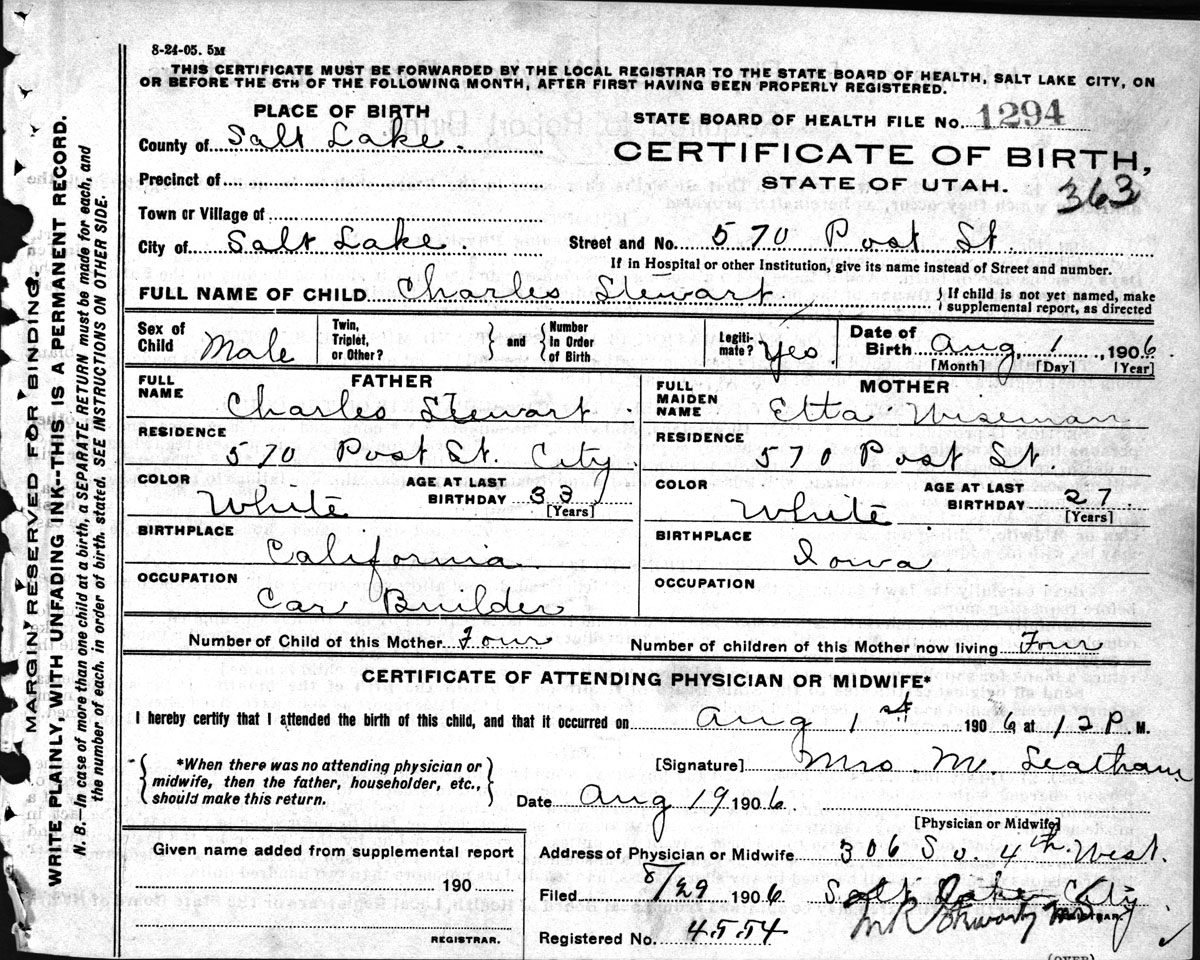 8-24-05. 5M
THIS CERTIFICATE MUST BE FORWARDED BY THE LOCAL REGISTRAR TO THE STATE BOARD OF HEALTH, SALT LAKE CITY, ON
OR BEFORE THE 5TH OF THE FOLLOWING MONTH, AFTER FIRST HAVING BEEN PROPERLY REGISTERED.
PLACE OF BIRTH
STATE BOARD OF HEALTH FILE No. 1294
County of Salt Lake.
CERTIFICATE OF BIRTH,
Precinct of
STATE OF UTAH.
363
Town or Village of
City of Salt Lake
Street and No. 570 Post St.
If in Hospital or other Institution, give its name instead of Street and number.
FULL NAME OF CHILD Charles Stewart
{ If child is not yet named, make
supplemental report, as directed
Sex of Child Male
Twin, Triplet, or Other?
} and { Number In Order of Birth
Legiti- mate? Yes
Date of Birth Aug, 1, 1906
[Month] [Day] [Year]
FATHER
FULL NAME Charles Stewart.
RESIDENCE 570 Post St. City
COLOR White
AGE AT LAST BIRTHDAY 33
[Years]
BIRTHPLACE California
OCCUPATION Car Builder
MOTHER
FULL MAIDEN NAME Etta Wiseman
RESIDENCE 570 Post St.
COLOR White
AGE AT LAST BIRTHDAY 27
[Years]
BIRTHPLACE Iowa
OCCUPATION
Number of Child of this Mother Four
Number of children of this Mother now living Four
CERTIFICATE OF ATTENDING PHYSICIAN OR MIDWIFE*
I hereby certify that I attended the birth of this child, and that it occurred on Aug 1st 1906 at 12 P. M.
{ *When there was no attending physician or
midwife, then the father, householder, etc.,
should make this return. }
[Signature] Mrs M Leatham
Date Aug 19 1906.
[Physician or Midwife]
Given name added from supplemental report
190
REGISTRAR.
Address of Physician or Midwife 306 So. 4th West.
Filed 8/29 1906 Salt Lake City
REGISTRAR.
Registered No. 4554
(OVER)
MARGIN RESERVED FOR BINDING.
WRITE PLAINLY, WITH UNFADING INK--THIS IS A PERMANENT RECORD.
N. B.—In case of more than one child at a birth, a SEPARATE RETURN must be made for each, and
the number of each, in order of birth, stated. SEE INSTRUCTIONS ON OTHER SIDE.